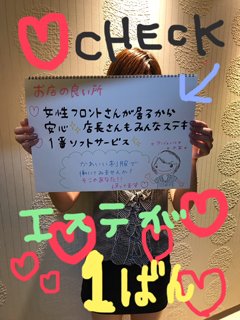 CHECK
お店の良い所
女性フロントさんが居るから
安心 店長さんもみんなステキ
1番ソットサービス
かわいい制服で
働いてみませんか?
そこのあなた!!
エステが
1ばん